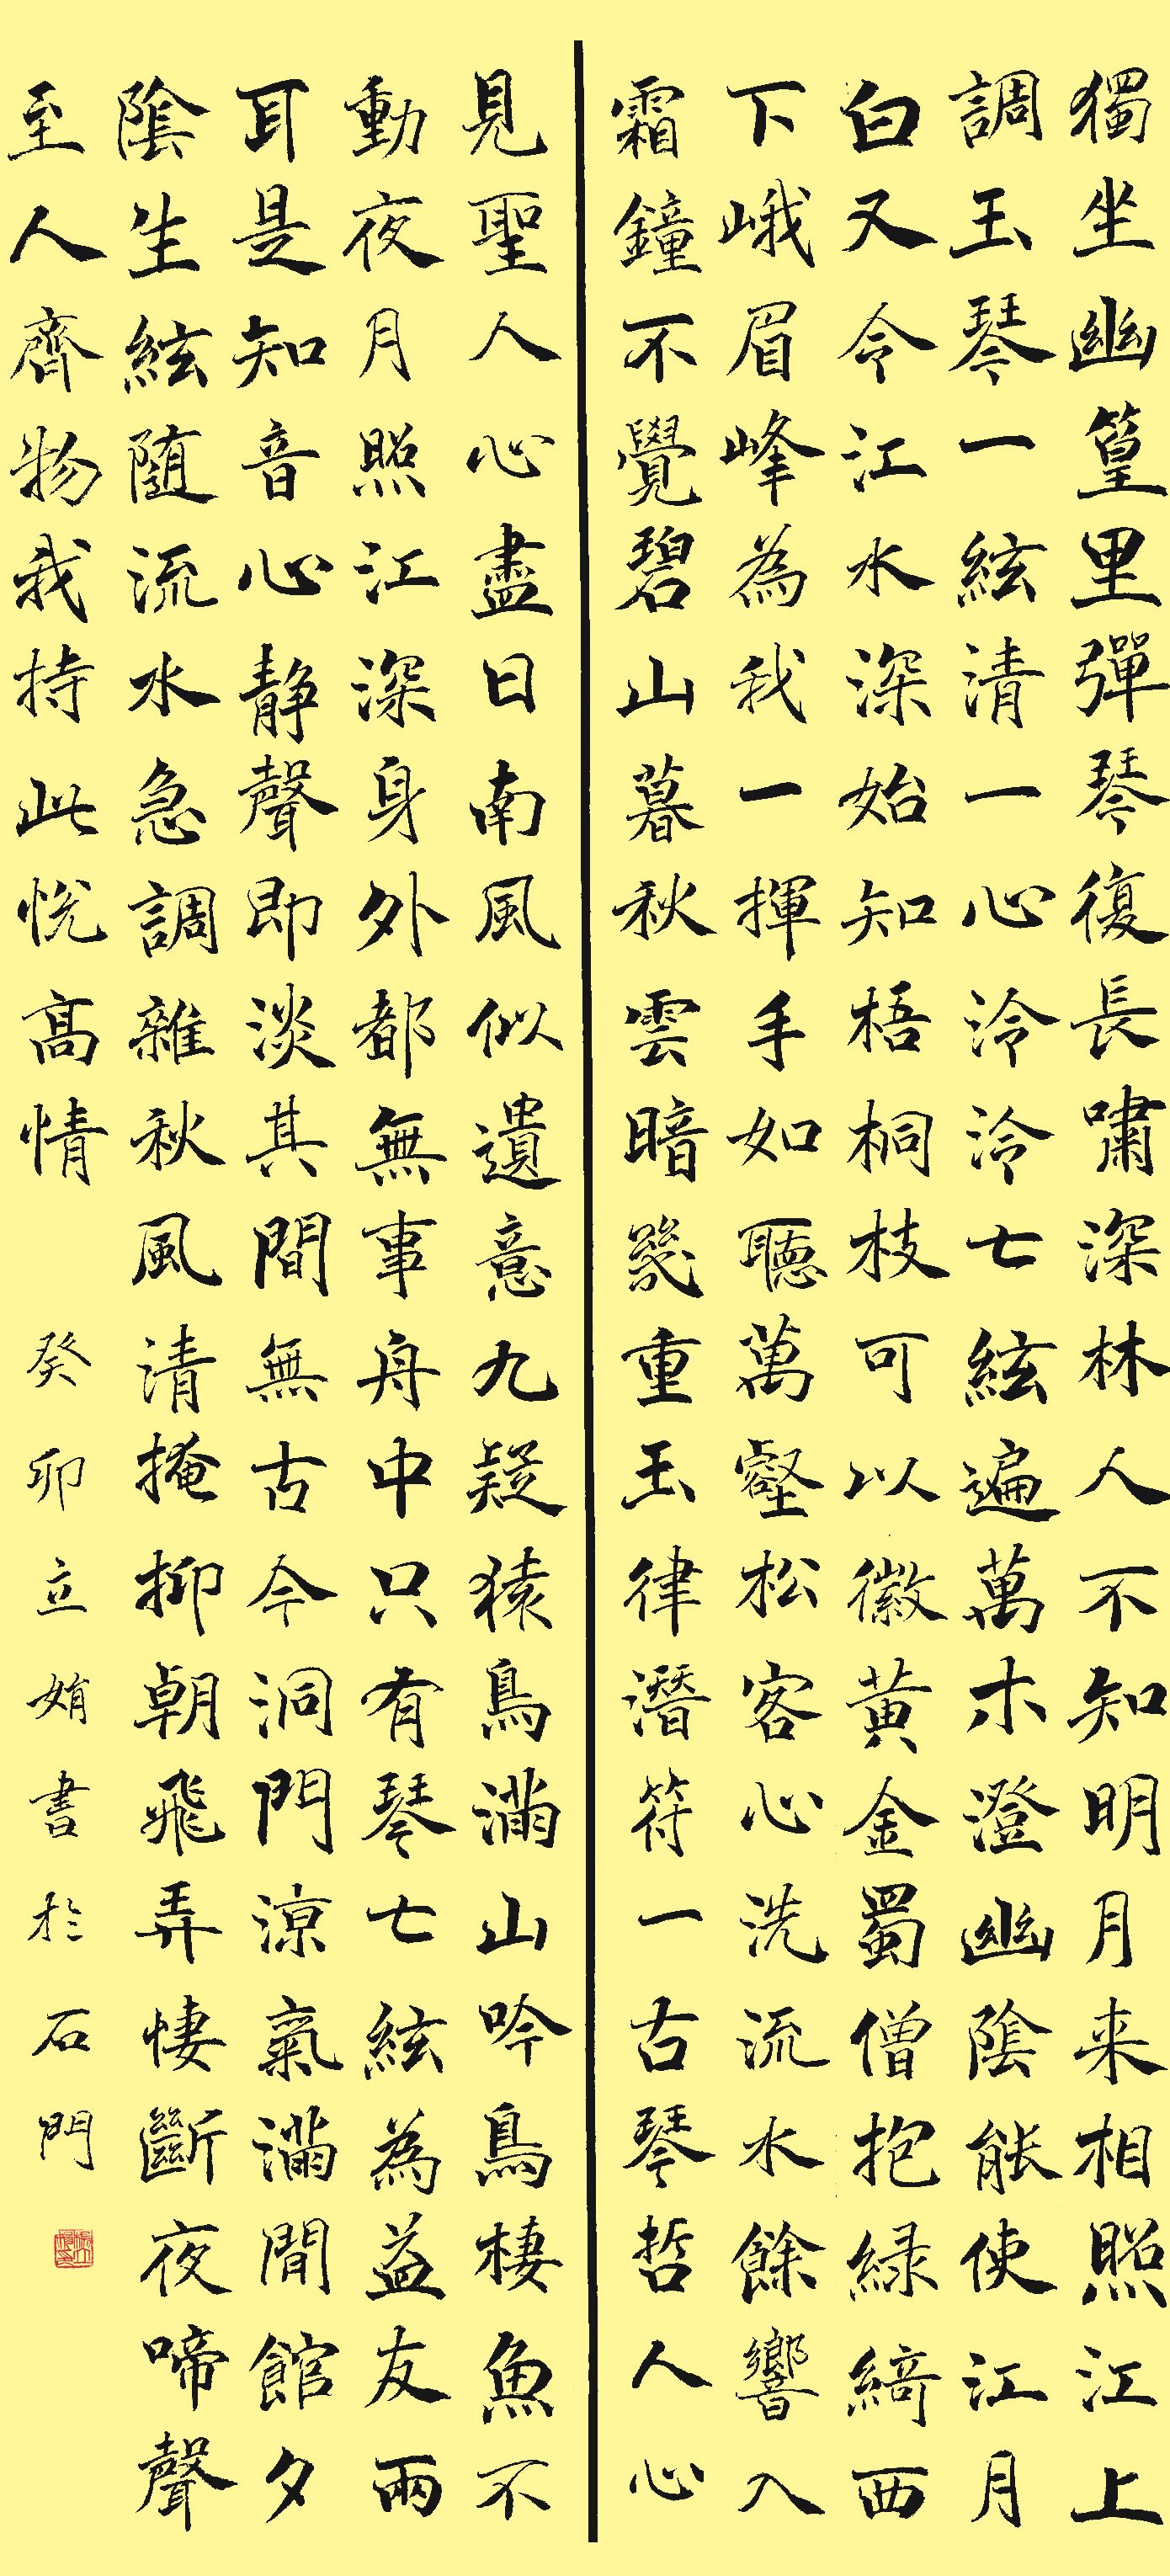 獨坐幽篁里彈琴復長嘯深林人不知明月来相照江上
調玉琴一絃清一心泠泠七絃遍萬木澄幽陰能使江月
白又令江水深始知梧桐枝可以徽黄金蜀僧抱緑綺西
下峨眉峰為我一揮手如聽萬壑松客心洗流水餘響入
霜鐘不覺碧山暮秋雲暗幾重玉律潛符一古琴哲人心
見聖人心盡日南風似遺意九疑猿鳥滿山吟鳥棲魚不
動夜月照江深身外都無事舟中只有琴七絃為益友兩
耳是知音心静聲即淡其間無古今洞門涼氣滿閒館夕
陰生絃随流水急調雜秋風清掩抑朝飛弄悽斷夜啼聲
至人齊物我持此悦高情
癸卯立娋書於石門